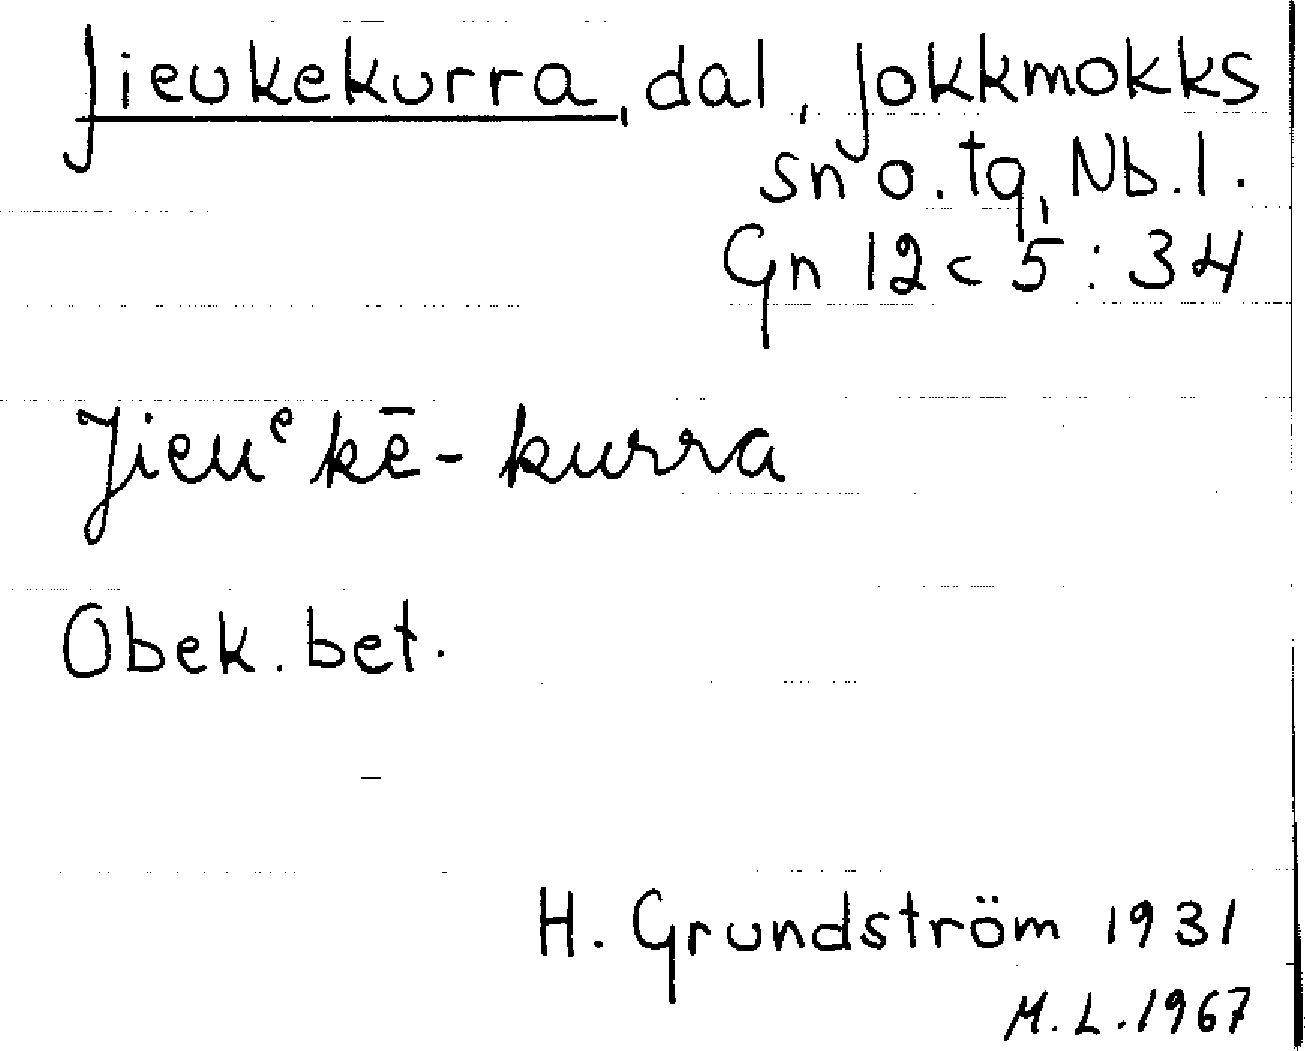 Jieukekurra, dal, Jokkmokks
sn o. tg, Nb. l.
Gn 12 c 5 : 34
Jieuᵉkē-kurra
Obek. bet.
H. Grundström 1931
M. L. 1967